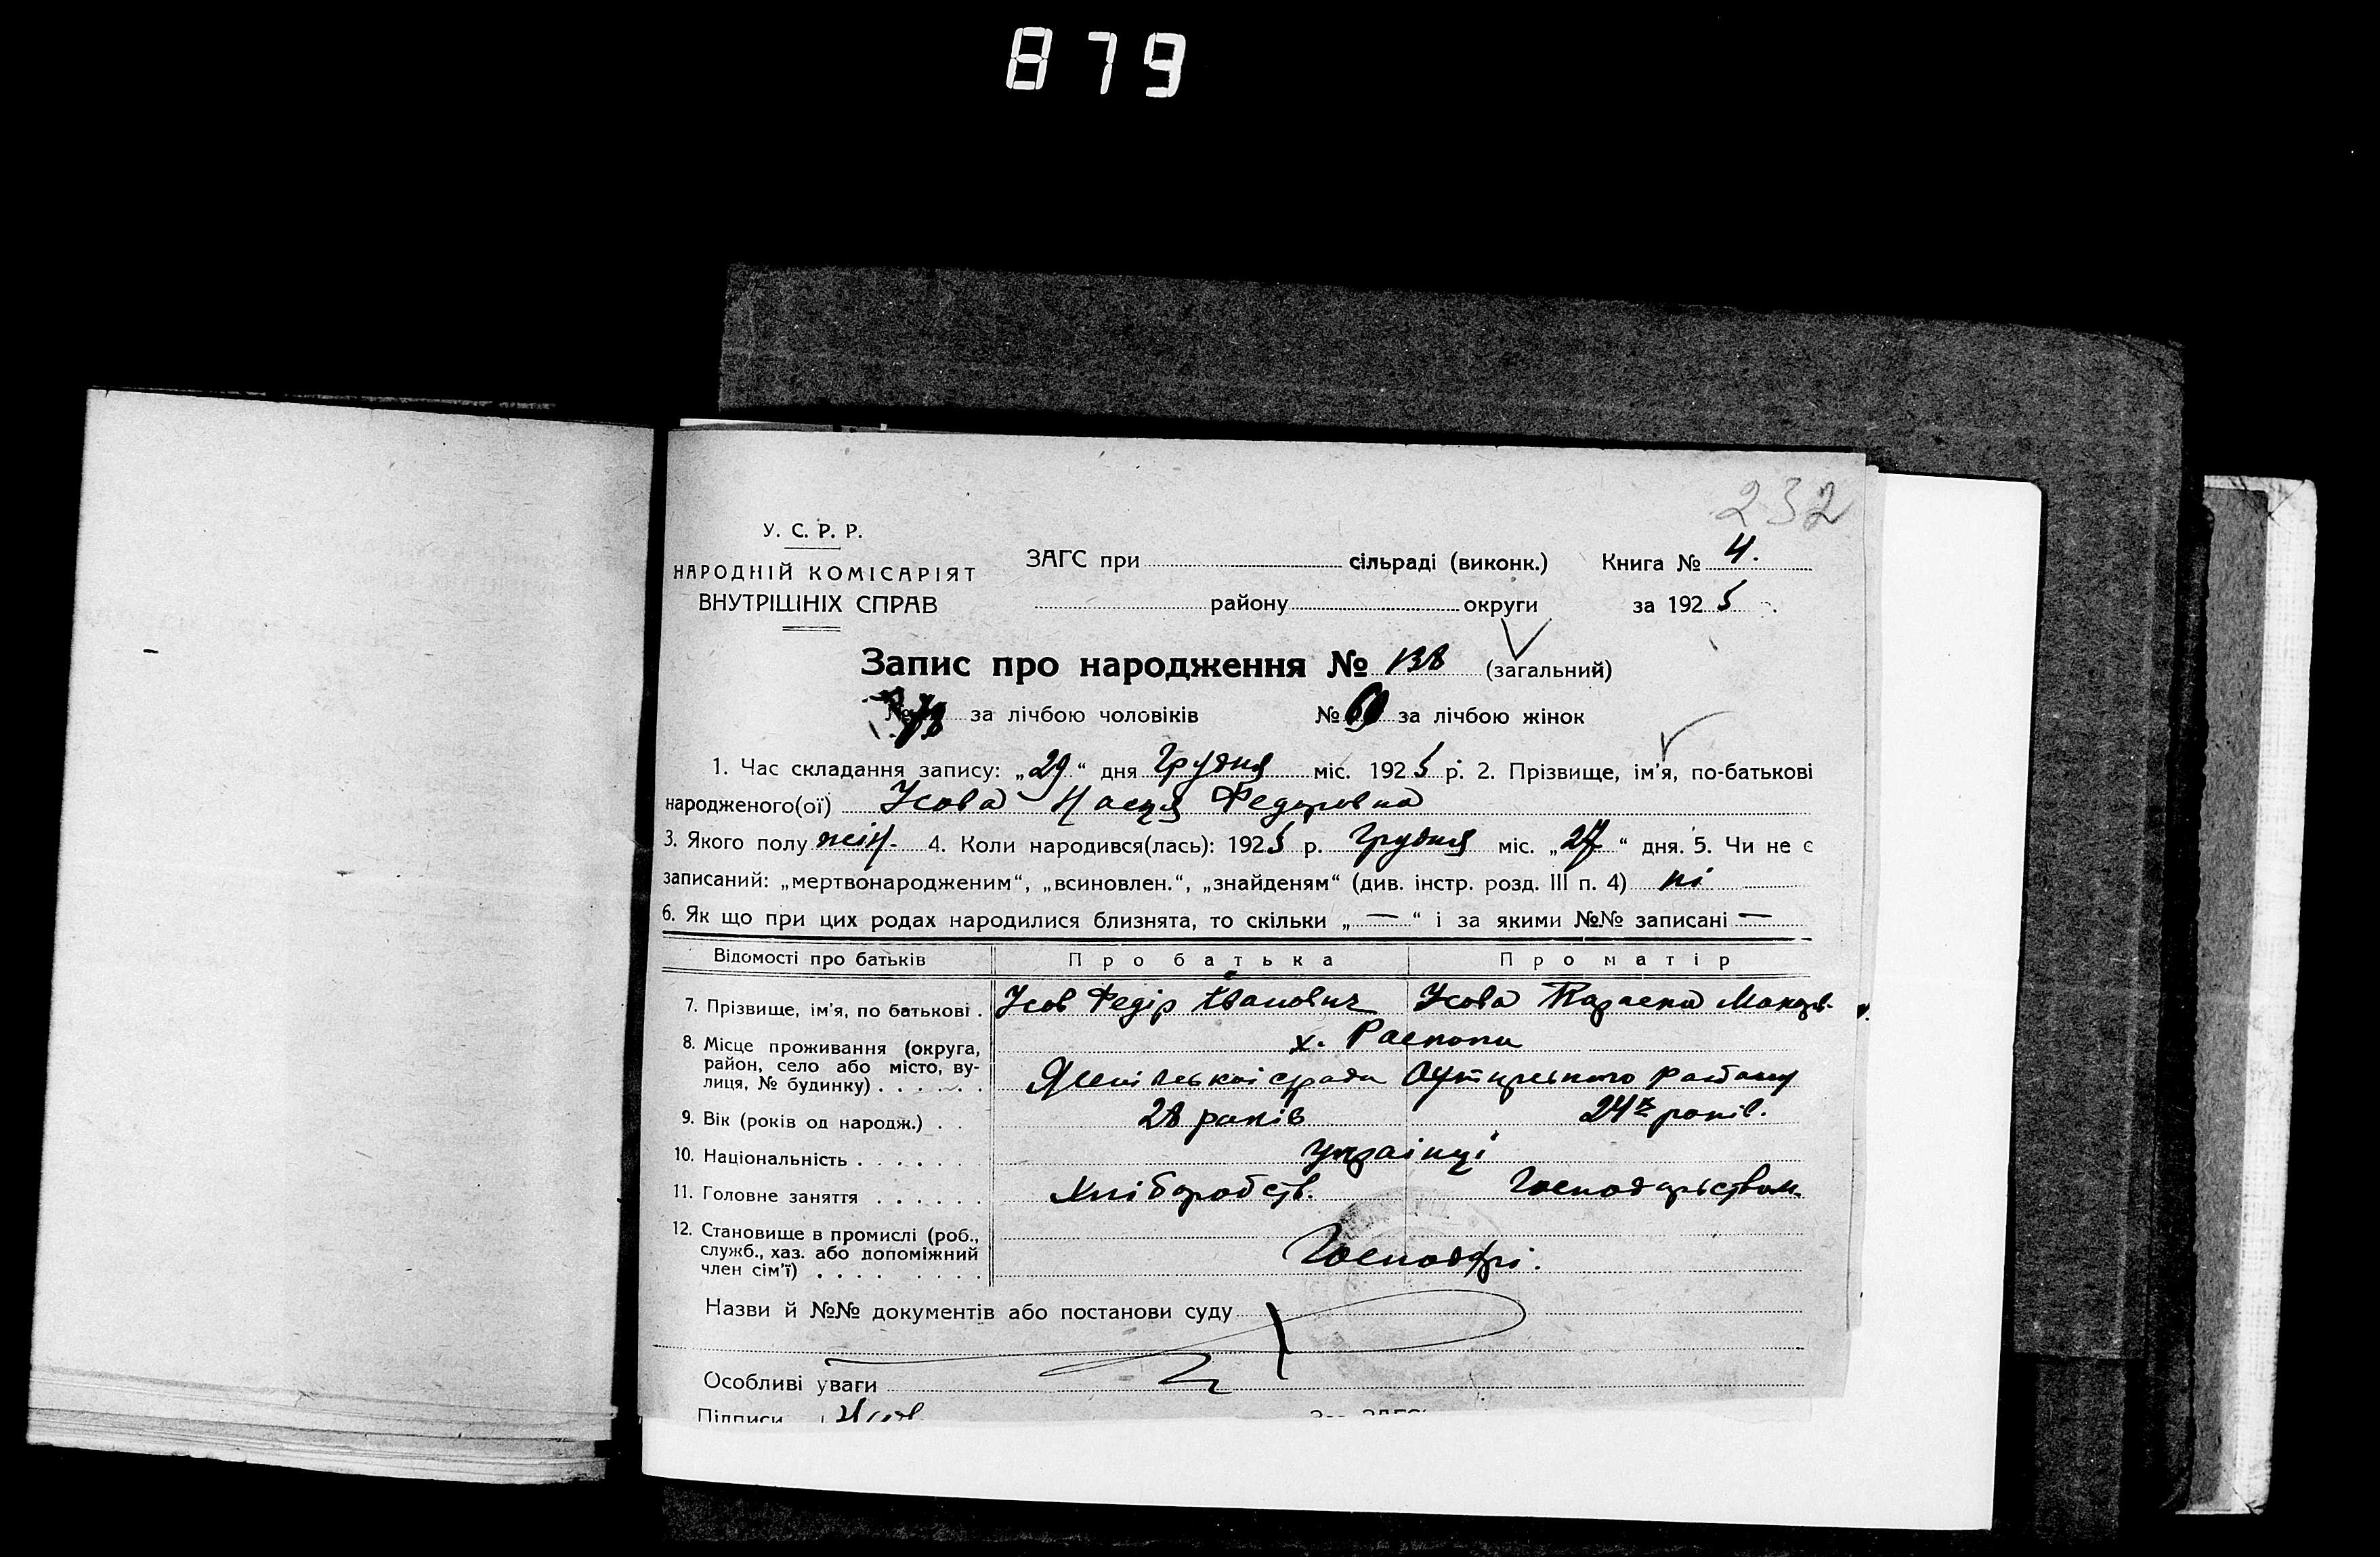 879
232
У. С. Р. Р.
НАРОДНІЙ КОМІСАРІЯТ
ВНУТРІШНІХ СПРАВ
ЗАГС при сільраді (виконк.) Книга № 4.
району округи за 1925
Запис про народження № 138 (загальний)
№ 78 за лічбою чоловіків № 60 за лічбою жінок
1. Час складання запису: „29“ дня Грудня міс. 1925 р. 2. Прізвище, ім'я, по-батькові
народженого(ої) Усова Настя Федоровна
3. Якого полу жін. 4. Коли народився(лась): 1925 р. Грудня міс. „27“ дня. 5. Чи не є
записаний: „мертвонародженим“, „всиновлен.“, „знайденям“ (див. інстр. розд. III п. 4) ні
6. Як що при цих родах народилися близнята, то скільки „—“ і за якими №№ записані —
Відомості про батьків Про батька Про матір
7. Прізвище, ім'я, по батькові . Усов Федір Іванович Усова Параска
8. Місце проживання (округа,
район, село або місто, ву-
лиця, № будинку) . . . . . .
х. Распопи
сради району
9. Вік (років од народж.) . . 28 років 24 років.
10. Національність . . . . . . українці
11. Головне заняття . . . . . . Хліборобств. Господарством.
12. Становище в промислі (роб.,
служб., хаз. або допоміжний
член сім'ї) . . . . . . . . Господарі.
Назви й №№ документів або постанови суду
Особливі уваги
Підписи